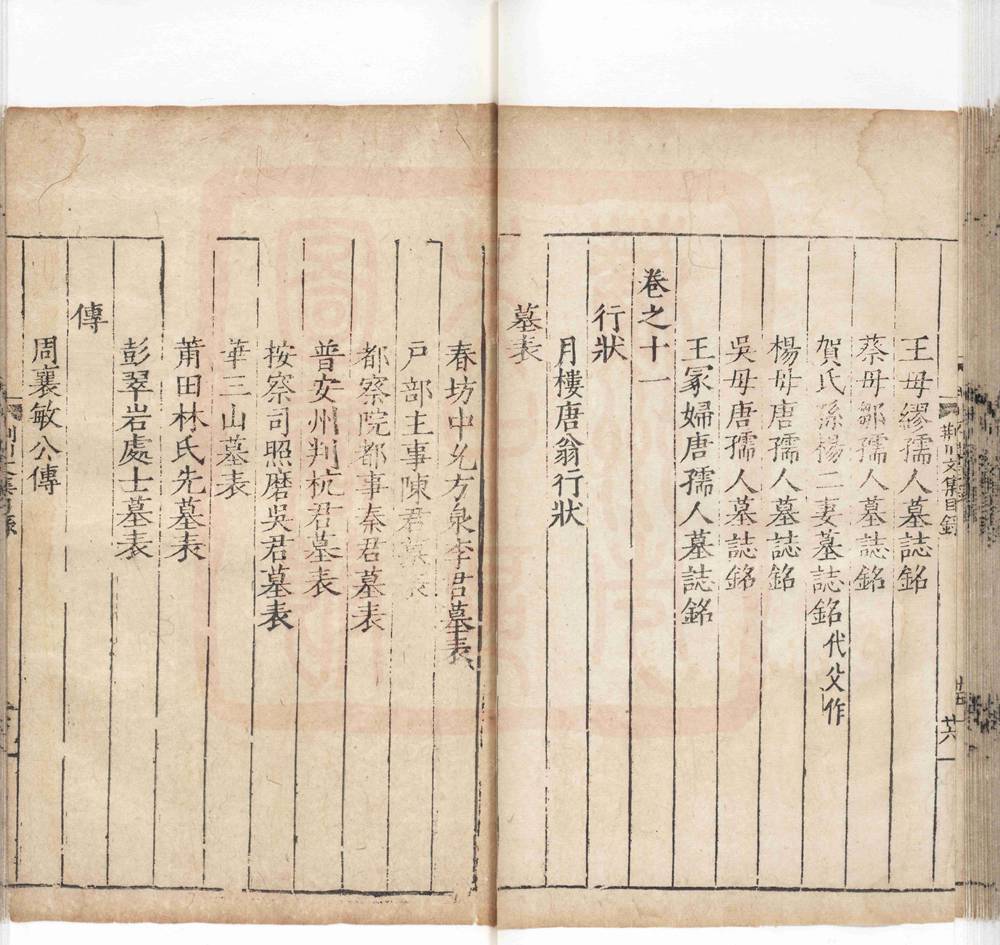 王母繆孺人墓誌銘
蔡母鄒孺人墓誌銘
賀氏孫楊二妻墓誌銘代父作
楊母唐孺人墓誌銘
吳母唐孺人墓誌銘
王冢婦唐孺人墓誌銘
卷之十一
行狀
月樓唐翁行狀
墓表
春坊中允方泉李君墓表
戶部主事陳君墓表
都察院都事秦君墓表
普安州判杭君墓表
按察司照磨吳君墓表
華三山墓表
莆田林氏先墓表
彭翠岩處士墓表
傳
周襄敏公傳
荊川文集目錄
廿六